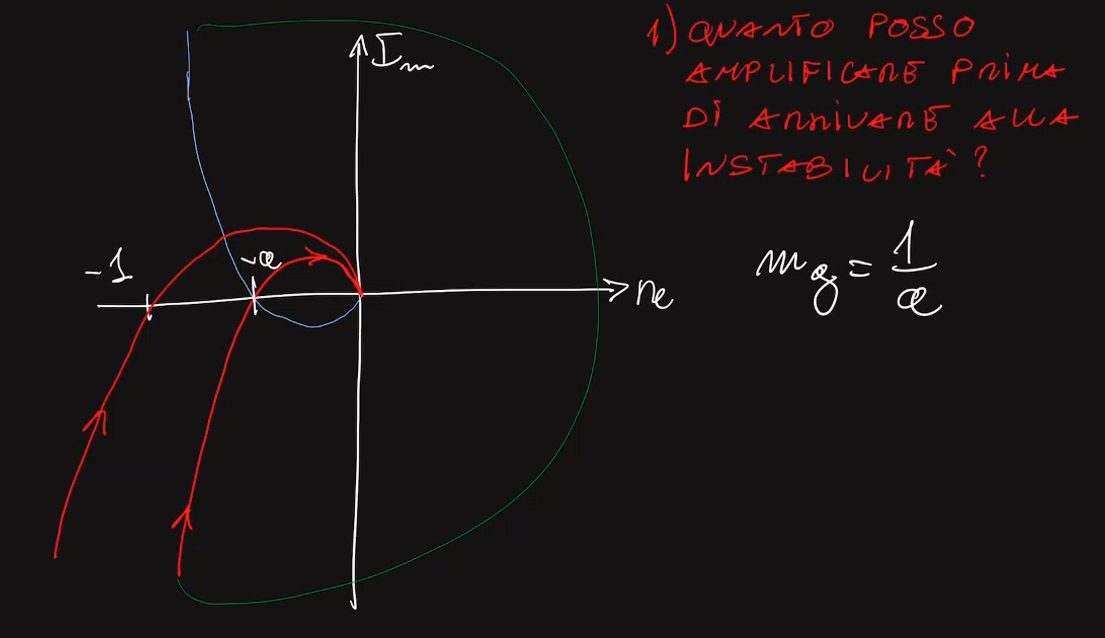 1) QUANTO POSSO
AMPLIFICARE PRIMA
DI ARRIVARE ALLA
INSTABILITÀ?
Im
-1
-a
Re
mg = 1/a